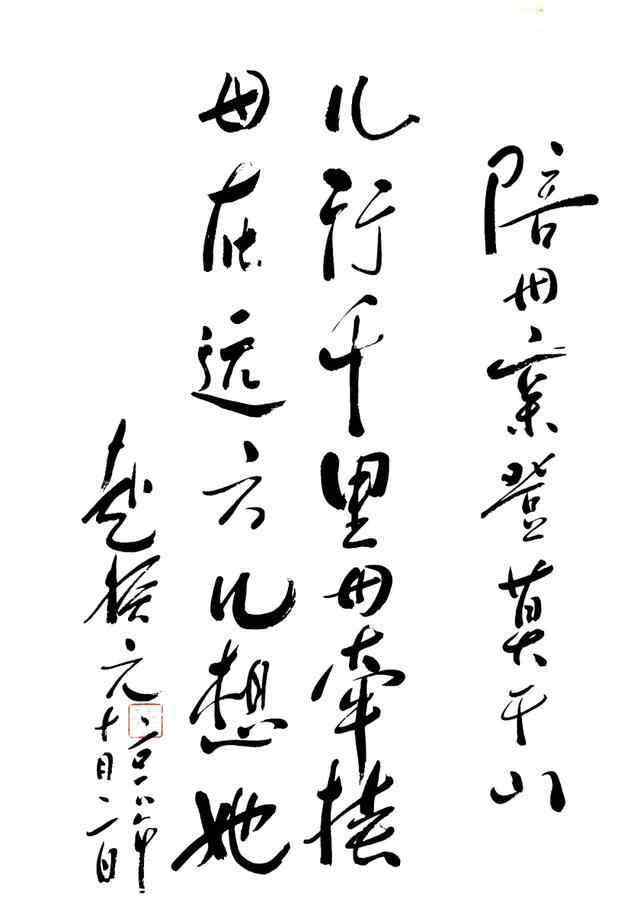 陪母亲登莫干山
儿行千里母牵挂
母在远方儿想她
赵元
二〇一八年
十月二日